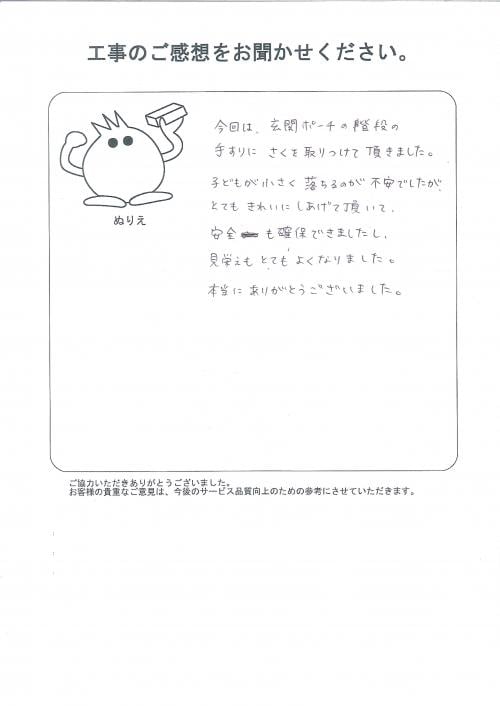 工事のご感想をお聞かせください。
ぬりえ
今回は、玄関ポーチの階段の
手すりに さくを取りつけて頂きました。
子どもが小さく落ちるのが不安でしたが、
とても きれいに しあげて頂いて、
安全も確保できましたし、
見栄えも とても よくなりました。
本当に ありがとうございました。
ご協力いただきありがとうございました。
お客様の貴重なご意見は、今後のサービス品質向上のための参考にさせていただきます。